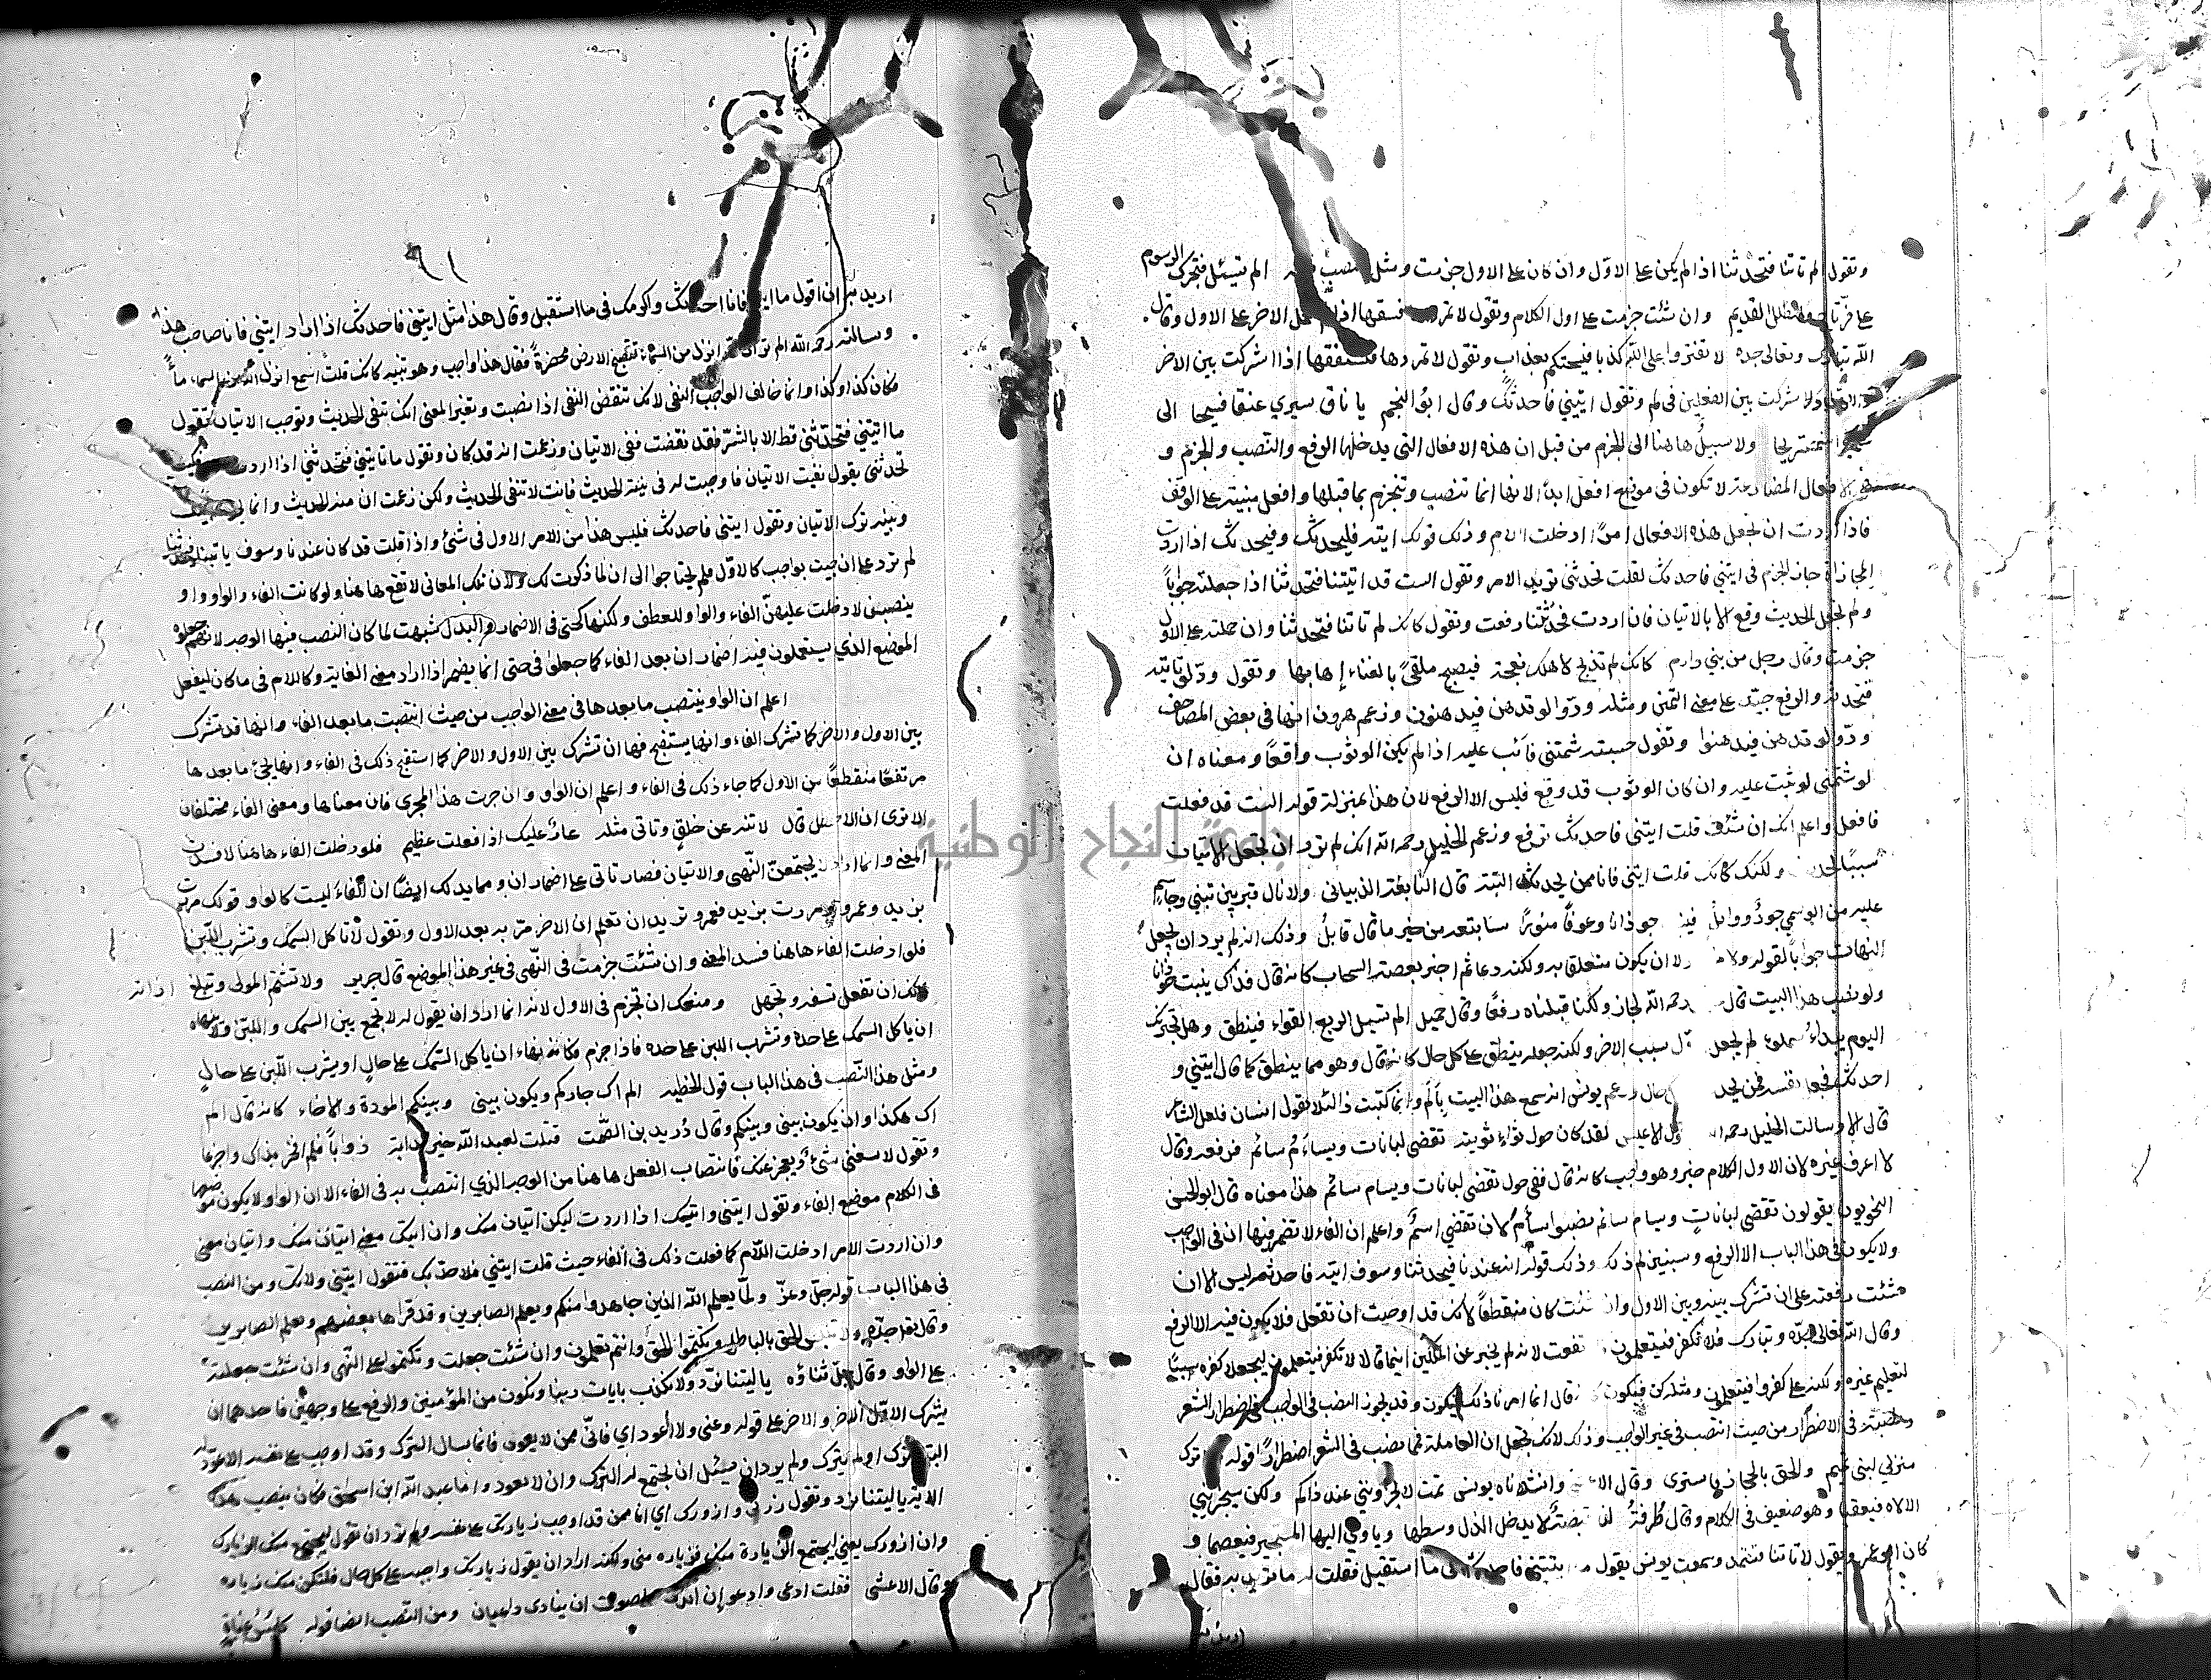 وتقول لم تاتنا فتحدثنا اذا لم يكن على الاول وان كان على الاول جزمت ومثل النصب الم تسئل فتخبرك الرسوم
على فرتاج والطلل القديم وان شئت جزمت على اول الكلام وتقول لا تمددها فتشققها اذا لم تحمل الاخر على الاول وقال
الله تبارك وتعالى جده لا تفتروا على الله كذبا فيسحتكم بعذاب وتقول لا تمددها فتشققها اذا اشركت بين الاخر
والاول كما اشركت بين الفعلين في لم وتقول ايتيني فاحدثك وقال ابو النجم يا ناق سيري عنقا فسيحا الى
فنستريحا ولا سبيل هاهنا الى الجزم من قبل ان هذه الافعال التي يدخلها الرفع والنصب والجزم و
الافعال المضارعة لا تكون في موضع افعل ابدا لانها انما تنتصب وتنجزم بما قبلها وافعل مبنية على الوقف
فاذا اردت ان تجعل هذه الافعال امرا ادخلت اللام وذلك قولك ايته فليحدثك وفيحدثك اذا اردت
المجازاة جاز الجزم في ايتني فاحدثك لقلت تحدثني تريد الامر وتقول الست قد اتيتنا فتحدثنا اذا جعلته جوابا
ولم تجعل الحديث وقع الا بالاتيان فان اردت فحدثتنا رفعت وتقول كانك لم تاتنا فتحدثنا وان حملته على الاول
جزمت وقال رجل من بني دارم كانك لم تذبح لاهلك نعجة فيصبح ملقى بالفناء إهابها وتقول ود لو تاتيه
فتحدثه والرفع جيد على معنى التمني ومثله ودوا لو تدهن فيدهنون وزعم هرون انها في بعض المصاحف
ودوا لو تدهن فيدهنوا وتقول حسبته شتمني فاثب عليه اذا لم يكن الوثوب واقعا ومعناه ان
لو شتمني لوثبت عليه وان كان الوثوب قد وقع فليس الا الرفع لان هذا بمنزلة قوله الست قد فعلت
فافعل واعلم انك ان شئت قلت ايتني فاحدثك ترفع وزعم الخليل رحمه الله انك لم ترد ان تجعل الاتيان
سببا لحديث ولكنك كانك قلت ايتني فانا ممن يحدثك البتة قال النابغة الذبياني ولا زال قبر بين تبنى وجاسم
عليه من الوسمي جود ووابل فينبت حوذانا وعوفا منورا ساتبعه من خير ما قال قائل وذلك انه لم يرد ان يجعل
النبات جوابا لقوله ولا ان يكون متعلقا به ولكنه دعا ثم اخبر بقصة السحاب كانه قال فذاك ينبت حوذانا
ولو نصب هذا البيت قال رحمه الله لجاز ولكنا قبلناه رفعا وقال جميل الم تسئل الربع القواء فينطق وهل تخبرنك
اليوم بيداء سملق لم يجعل الاول سبب الاخر ولكنه جعله ينطق على كل حال كانه قال وهو مما ينطق كما قال ايتني و
احدثك فجعل نفسه ممن يحدثه على كل حال وزعم يونس انه سمع هذا البيت بالم وانما كتبت ذا لئلا يقول انسان فلعل الشاعر
قال الا وسالت الخليل رحمه الله عن قول الاعشى لقد كان في حول ثواء ثويته تقضي لبانات ويسام سائم فرفعه وقال
لا اعرف غيره لان الاول الكلام خبر وهو واجب كانه قال ففي حول تقضي لبانات ويسام سائم هذا معناه قال ابو الحسن
النحويون يقولون تقضي لبانات ويسام سائم نصبوا يسام لان تقضي اسم واعلم ان الفاء لا تضمر فيها ان في الواجب
ولا يكون في هذا الباب الا الرفع وسنبين لم ذلك وذلك قوله انه عندنا فيحدثنا وسوف اتيه فاحدثه ليس الا ان
شئت رفعته على ان تشرك بينه وبين الاول وان شئت كان منقطعا لانك قد اوجبت ان تفعل فلا يكون فيه الا الرفع
وقال الله تعالى جده وتبارك فلا تكفر فيتعلمون ارتفعت لانه لم يخبر عن الملكين انهما قالا لا تكفر فيتعلمون ليجعلا كفره سببا
لتعليم غيره ولكنه على كفروا فيتعلمون ومثله كن فيكون كانه قال انما امرنا ذلك فيكون وقد يجوز النصب في الواجب في اضطرار الشعر
ونصبه في الاضطرار من حيث انتصب في غير الواجب وذلك لانك تجعل ان العاملة فمما نصب في الشعر اضطرارا قوله ساترك
منزلي لبني تميم والحق بالحجاز فاستريحا وقال الاعشى وانشدناه يونس ثمت لا تجزونني عند ذاكم ولكن سيجزيني
الاله فيعقبا وهو ضعيف في الكلام وقال طرفة لنا هضبة لا يدخل الذل وسطها وياوي اليها المستجير فيعصما و
كان ابو عمرو يقول لا تاتنا فنشتمك وسمعت يونس يقول ما اتيتني فاحدثك في ما استقبل فقلت له ما تريد به فقال
اريد ان
اريد ان اقول ما اتيتني فانا احدثك واكرمك في ما استقبل وقال هذا مثل ايتني فاحدثك اذا اراد ايتني فانا صاحب هذا
وسالته رحمه الله الم تر ان الله انزل من السماء ماء فتصبح الارض مخضرة فقال هذا واجب وهو تنبيه كانك قلت اتسمع انزل الله من السماء ماء
فكان كذا وكذا وانما خالف الواجب النفي لانك تنقض النفي اذا نصبت وتغير المعنى انك تنفي الحديث وتوجب الاتيان تقول
ما اتيتني فتحدثني قط الا بالشر فقد نقضت نفي الاتيان وزعمت انه قد كان وتقول ما تاتيني فتحدثني اذا اردت
تحدثني يقول نفيت الاتيان فاوجبت له في نيته الحديث فانت لا تنفي الحديث ولكن زعمت ان منه الحديث وانما يحول بينك
وبينه ترك الاتيان وتقول ايتني فاحدثك فليس هذا من الامر الاول في شئ واذا قلت قد كان عندنا وسوف ياتينا فيحدثنا
لم تزد على ان جيت بواجب كالاول فلم يحتاجوا الى ان لما ذكرت لك ولان تلك المعاني لا تقع هاهنا ولو كانت الفاء والواو واو
ينصبن لادخلت عليهن الفاء والواو للعطف ولكنها كحتى في الاضمار والبدل شبهت لما كان النصب فيها الوجه لانهم جعلوه
الموضع الذي يستعملون فيه اضمار ان بعد الفاء كما جعلوا في حتى انما يضمر اذا اراد معنى الغاية وكاللام في ما كان ليفعل
اعلم ان الواو ينتصب ما بعدها في معنى الواجب من حيث انتصبت ما بعد الفاء وانها قد تشرك
بين الاول والاخر كما تشرك الفاء وانها يستقبح فيها ان تشرك بين الاول والاخر كما استقبح ذلك في الفاء وانها يجئ ما بعدها
مرتفعا منقطعا من الاول كما جاء ذلك في الفاء واعلم ان الواو وان جرت هذا المجرى فان معناها ومعنى الفاء مختلفان
الا ترى ان الاخطل قال لا تنه عن خلق وتاتي مثله عار عليك اذا فعلت عظيم فلو دخلت الفاء هاهنا لافسدت
المعنى وانما اراد لا يجتمعن النهي والاتيان فصار تاتي على اضمار ان ومما يدلك ايضا ان الفاء ليست كالواو قولك مررت
بزيد وعمرو ومررت بزيد فعمرو تريد ان تعلم ان الاخر مر به بعد الاول وتقول لا تاكل السمك وتشرب اللبن
فلو ادخلت الفاء هاهنا فسد المعنى وان شئت جزمت في النهي في غير هذا الموضع قال جرير ولا تشتم المولى وتبلغ اذاته
فانك ان تفعل تسفه وتجهل ومنعك ان تجزم في الاول لانه انما اراد ان يقول له لا تجمع بين السمك واللبن ولا ينهاه
ان ياكل السمك على حدة وتشرب اللبن على حده فاذا جزم فكانه نهاه ان ياكل السمك على حال او يشرب اللبن على حال
ومثل هذا النصب في هذا الباب قول الحطيئه الم اك جاركم ويكون بيني وبينكم المودة والاخاء كانه قال الم
اك هكذا وان يكون بيني وبينكم وقال دريد بن الصمة قتلت لعبد الله خير لداته ذؤابا فلم افخر بذاك واجزعا
وتقول لا يسعني شئ ويعجز عنك فانتصاب الفعل هاهنا من الوجه الذي انتصب به في الفاء الا ان الواو لا يكون موضعها
في الكلام موضع الفاء وتقول ايتني واتيك اذا اردت ليكن اتيان منك وان اتيك معنى اتيان منك واتيان مني
وان اردت الامر ادخلت اللام كما فعلت ذلك في الفاء حيث قلت ايتني فلاحدثك فتقول ايتني ولاتك ومن النصب
في هذا الباب قوله جل وعز ولما يعلم الله الذين جاهدوا منكم ويعلم الصابرين وقد قراها بعضهم ويعلم الصابرين
وقال تعالى جده ولا تلبسوا الحق بالباطل وتكتموا الحق وانتم تعلمون وان شئت جعلت وتكتموا على النهي وان شئت جعلته
على الواو وقال جل ثناؤه يا ليتنا نرد ولا نكذب بايات ربنا ونكون من المؤمنين والرفع على وجهين فاحدهما ان
يشرك الاول الاخر والاخر على قوله دعني ولا اعود اي فاني ممن لا يعود فانما يسال الترك وقد اوجب على نفسه الا عودة له
البتة ترك او لم يترك ولم يرد ان يسئل ان يجتمع له الترك وان لا يعود واما عبد الله ابن ابي اسحق فكان ينصب هذه
الاية يا ليتنا نرد وتقول زرني وازورك اي انا ممن قد اوجب زيارتك على نفسه ولم ترد ان تقول لتجتمع منك الزيارة
وان ازورك يعني لتجتمع الزيارة منك فزياره مني ولكنه اراد ان يقول زيارتك واجبة على كل حال فلتكن منك زيارة
وقال الاعشى فقلت ادعي وادعو إن اندى لصوت ان ينادي داعيان ومن النصب ايضا قوله